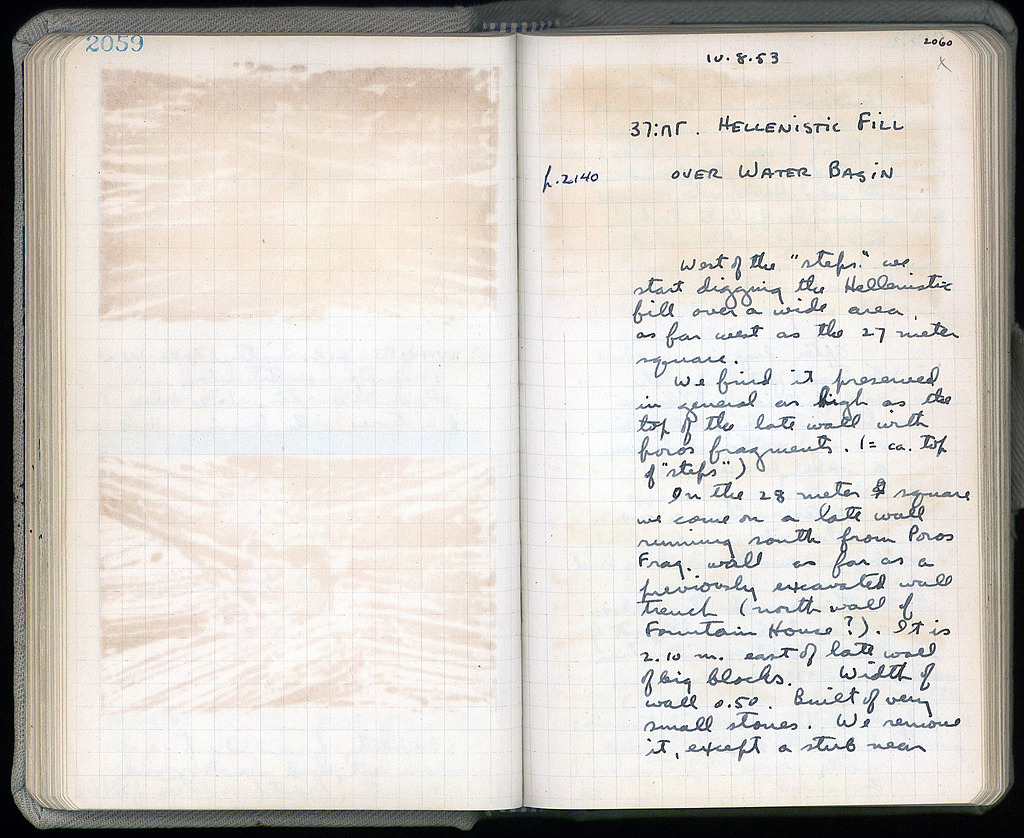 2059
2060
X
10.8.53
37:ΠΓ. HELLENISTIC FILL
p.2140
OVER WATER BASIN
West of the "steps." we
start digging the Hellenistic
fill over a wide area,
as far west as the 27 meter
square.
We find it preserved
in general as high as the
top of the late wall with
poros fragments. (= ca. top
of "steps")
In the 28 meter square
we come on a late wall
running south from Poros
Frag. wall as far as a
previously excavated wall
trench (north wall of
Fountain House?). It is
2.10 m. east of late wall
of big blocks. Width of
wall 0.50. Built of very
small stones. We remove
it, except a stub near